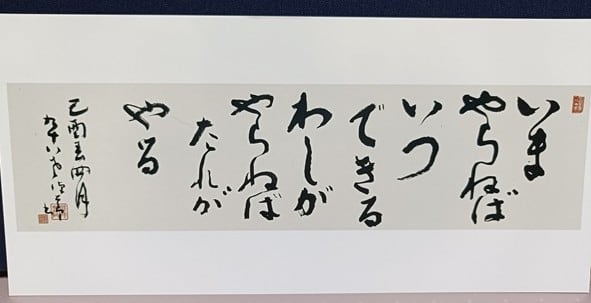 いま
やらねば
いつ
できる
わしが
やらねば
たれが
やる
己酉春四月
九十八